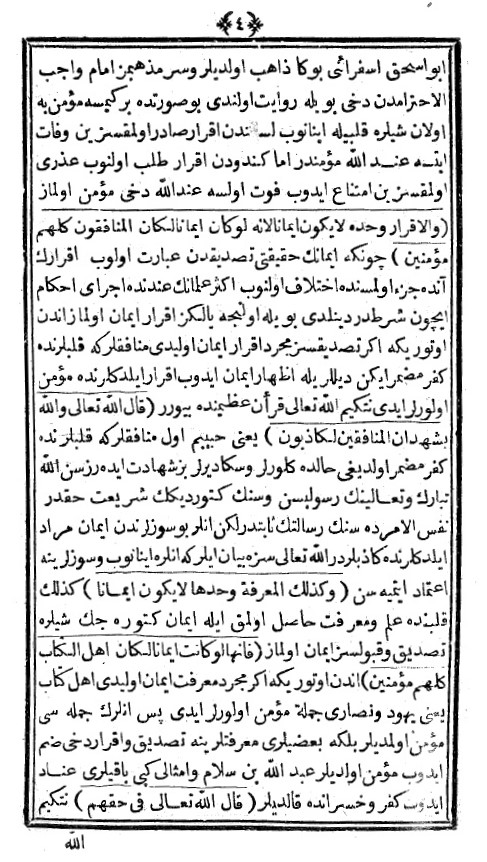 ٤
ابو اسحق اسفرائى بوكا ذاهب اولديلر وسر مذهبمز امام واجب
الاحترامدن دخى بويله روايت اولندى بو صورتده بر كيمسه مؤمن به
اولان شيلره قلبيله اينانوب لسانندن اقرار صادر اولمقسزين وفات
ايتسه عند الله مؤمندر اما كندودن اقرار طلب اولنوب عذرى
اولمقسزين امتناع ايدوب فوت اولسه عندالله دخى مؤمن اولماز
(والاقرار وحده لايكون ايمانا لانه لوكان ايمانا لكان المنافقون كلهم
مؤمنين) چونكه ايمانك حقيقتى تصديقدن عبارت اولوب اقرارك
آنده جزء اولمسنده اختلاف اولنوب اكثر علمانك عندنده اجراى احكام
ايچون شرطدر دينلدى بويله اوليجه يالكز اقرار ايمان اولماز اندن
اوتوريكه اكر تصديقسز مجرد اقرار ايمان اوليدى منافقلركه قلبلرنده
كفر مضمر ايكن ديللريله اظهار ايمان ايدوب اقرار ايلدكلرنده مؤمن
اولورلر ايدى نتكيم الله تعالى قرآن عظيمنده بيورر (قال الله تعالى والله
يشهد ان المنافقين لكاذبون) يعنى حبيبم اول منافقلركه قلبلرنده
كفر مضمر اولديغى حالده كلورلر وسكا ديرلر بز شهادت ايده رز سن الله
تبارك وتعالينك رسوليسن وسنك كتورديكك شريعت حقدر
نفس الامرده سنك رسالتك ثابتدر لكن انلر بو سوزلرندن ايمان مراد
ايلدكلرنده كاذبلردر الله تعالى سزه بيان ايلركه انلره اينانوب وسوزلرينه
اعتماد ايتميه سن (وكذلك المعرفة وحدها لايكون ايمانا) كذلك
قلبنده علم ومعرفت حاصل اولمق ايله ايمان كتوره جك شيلره
تصديق وقبولسز ايمان اولماز (فانها لو كانت ايمانا لكان اهل الكتاب
كلهم مؤمنين) اندن اوتوريكه اكر مجرد معرفت ايمان اوليدى اهل كتاب
يعنى يهود ونصارى جملة مؤمن اولورلر ايدى پس انلرك جمله سى
مؤمن اولمديلر بلكه بعضيلرى معرفتلرينه تصديق واقرار دخى ضم
ايدوب مؤمن اولديلر عبد الله بن سلام وامثالى كبى باقيلرى عناد
ايدوب كفر وخسرانده قالديلر (قال الله تعالى فى حقهم) نتكيم
الله